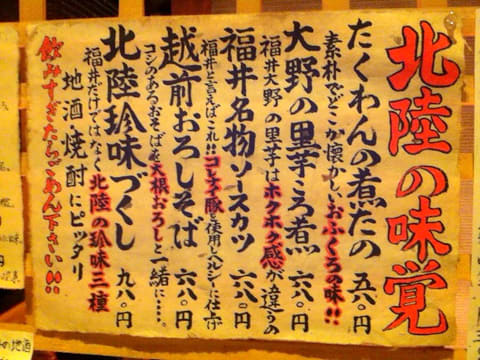 北陸の味覚
たくわんの煮たの 五八〇円
素朴でどこか懐かしいおふくろの味!!
大野の里芋ころ煮 六八〇円
福井大野の里芋はホクホク感が違うの
福井名物ソースカツ 六八〇円
福井と言えばこれ!!コレステ豚を使用しヘルシーに仕上げ
越前おろしそば 六八〇円
コシのあるおそばを大根おろしと一緒に……
北陸珍味づくし 九八〇円
福井だけではなく北陸の珍味三種
地酒焼酎にピッタリ
飲みすぎたらごめん下さい!!
の地酒